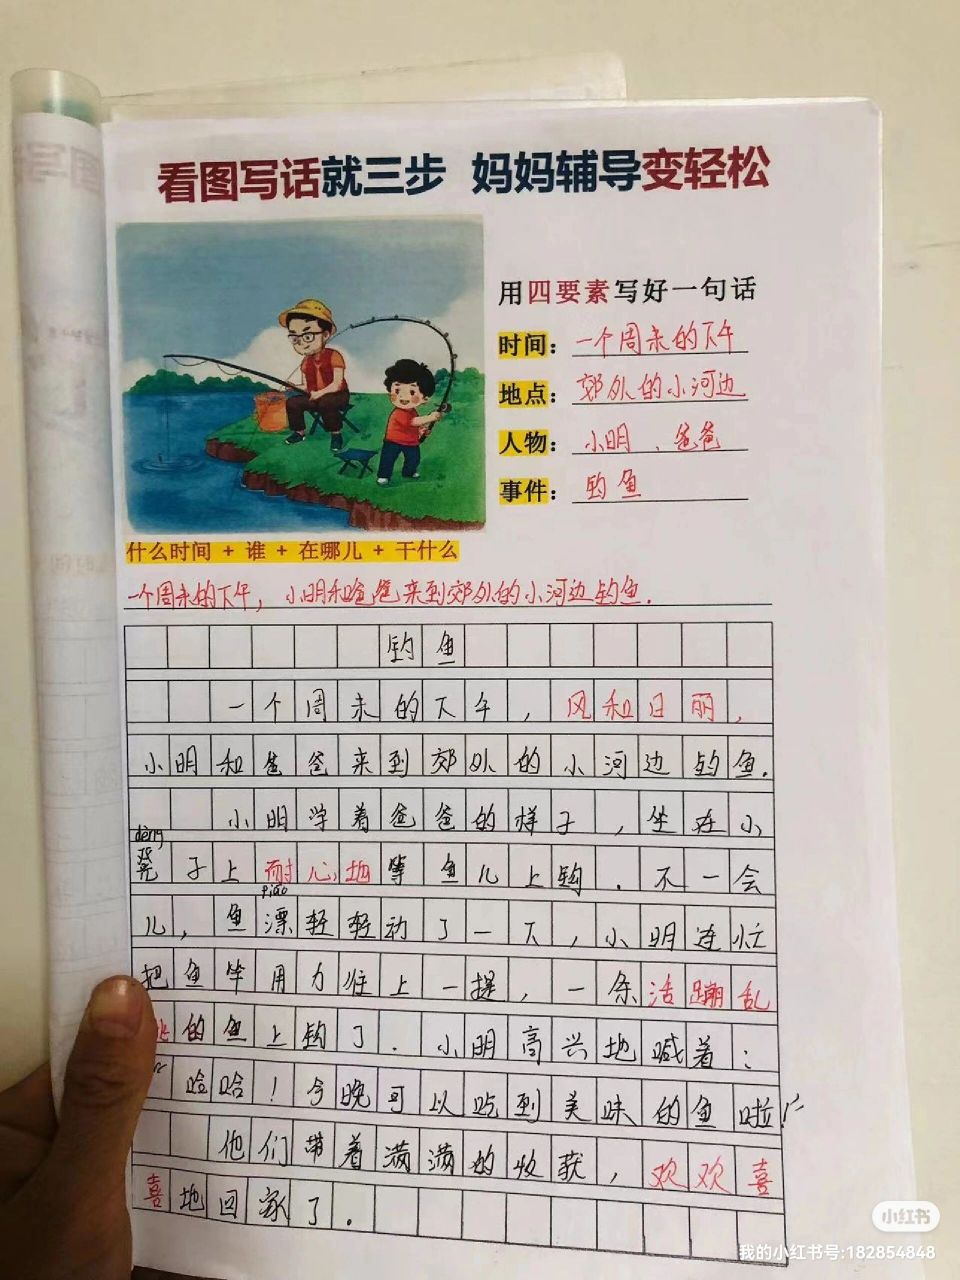 看图写话就三步 妈妈辅导变轻松
用四要素写好一句话
时间：一个周末的下午
地点：郊外的小河边
人物：小明、爸爸
事件：钓鱼
什么时间 + 谁 + 在哪儿 + 干什么
一个周末的下午，小明和爸爸来到郊外的小河边钓鱼.
钓鱼
一个周末的下午，风和日丽，
小明和爸爸来到郊外的小河边钓鱼.
小明学着爸爸的样子，坐在小
dèng
凳子上耐心地等鱼儿上钩.不一会
piāo
儿，鱼漂轻轻动了一下，小明连忙
把鱼竿用力往上一提，一条活蹦乱
的鱼上钩了.小明高兴地喊着：
哈哈！今晚可以吃到美味的鱼啦！”
他们带着满满的收获，欢欢喜
喜地回家了.
小红书
我的小红书号:182854848